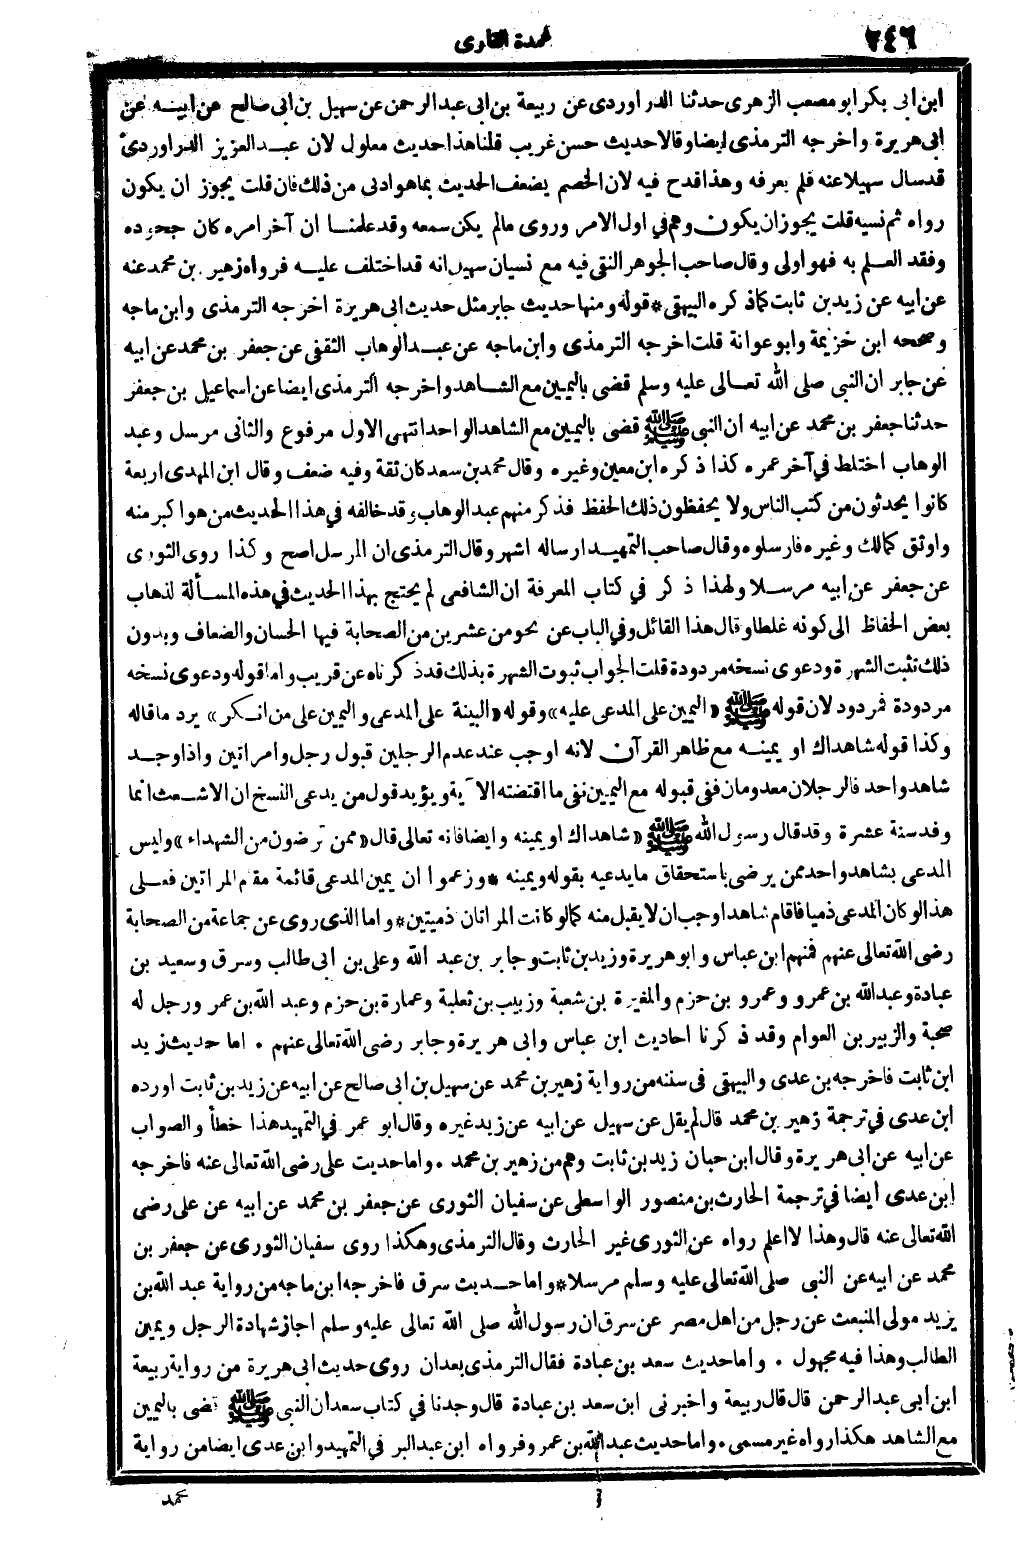 ٢٤٦
عمدة القارى
ابن ابى بكر ابو مصعب الزهرى حدثنا الدراوردى عن ربيعة بن ابى عبد الرحمن عن سهيل بن ابى صالح عن ابيه عن
ابى هريرة واخرجه الترمذى ايضا وقالا حديث حسن غريب قلنا هذا حديث معلول لان عبد العزيز الدراوردى
قد سال سهيلا عنه فلم يعرفه وهذا قدح فيه لان الخصم يضعف الحديث بما هو ادنى من ذلك فان قلت يجوز ان يكون
رواه ثم نسيه قلت يجوز ان يكون وهم فى اول الامر وروى ما لم يكن سمعه وقد علمنا ان آخر امره كان جحوده
وفقد العلم به فهو اولى وقال صاحب الجوهر النقى فيه مع نسيان سهيل انه قد اختلف عليه فرواه زهير بن محمد عنه
عن ابيه عن زيد بن ثابت كما ذكره البيهقى * قوله ومنها حديث جابر مثل حديث ابى هريرة اخرجه الترمذى وابن ماجه
وصححه ابن خزيمة وابو عوانة قلت اخرجه الترمذى وابن ماجه عن عبد الوهاب الثقفى عن جعفر بن محمد عن ابيه
عن جابر ان النبى صلى الله تعالى عليه وسلم قضى باليمين مع الشاهد واخرجه الترمذى ايضا عن اسماعيل بن جعفر
حدثنا جعفر بن محمد عن ابيه ان النبى ﷺ قضى باليمين مع الشاهد الواحد انتهى الاول مرفوع والثانى مرسل وعبد
الوهاب اختلط فى آخر عمره كذا ذكره ابن معين وغيره وقال محمد بن سعد كان ثقة وفيه ضعف وقال ابن المهدى اربعة
كانوا يحدثون من كتب الناس ولا يحفظون ذلك الحفظ فذكر منهم عبد الوهاب وقد خالفه فى هذا الحديث من هو اكبر منه
واوثق كمالك وغيره فارسلوه وقال صاحب التمهيد ارساله اشهر وقال الترمذى ان المرسل اصح وكذا روى الثورى
عن جعفر عن ابيه مرسلا ولهذا ذكر فى كتاب المعرفة ان الشافعى لم يحتج بهذا الحديث فى هذه المسألة لذهاب
بعض الحفاظ الى كونه غلطا وقال هذا القائل وفى الباب عن نحو من عشرين من الصحابة فيها الحسان والضعاف وبدون
ذلك تثبت الشهرة ودعوى نسخه مردودة قلت الجواب ثبوت الشهرة بذلك قد ذكرناه عن قريب واما قوله ودعوى نسخه
مردودة فمردود لان قوله ﷺ «اليمين على المدعى عليه» وقوله «البينة على المدعى واليمين على من انكر» يرد ما قاله
وكذا قوله شاهداك او يمينه مع ظاهر القرآن لانه اوجب عند عدم الرجلين قبول رجل وامراتين واذا وجد
شاهد واحد فالرجلان معدومان ففى قبوله مع اليمين نفى ما اقتضته الآية ويؤيد قول من يدعى النسخ ان الاشعث انما
وفد سنة عشرة وقد قال رسول الله ﷺ «شاهداك او يمينه وايضا فانه تعالى قال «ممن ترضون من الشهداء» وليس
المدعى بشاهد واحد ممن يرضى باستحقاق ما يدعيه بقوله ويمينه * وزعموا ان يمين المدعى قائمة مقام المراتين فعلى
هذا لو كان المدعى ذميا فاقام شاهدا وجب ان لا يقبل منه كما لو كانت المراتان ذميتين * واما الذى روى عن جماعة من الصحابة
رضى الله تعالى عنهم فمنهم ابن عباس وابو هريرة وزيد بن ثابت وجابر بن عبد الله وعلى بن ابى طالب وسرق وسعيد بن
عبادة وعبد الله بن عمرو وعمرو بن حزم والمغيرة بن شعبة وزبيب بن ثعلبة وعمارة بن حزم وعبد الله بن عمر ورجل له
صحبة والزبير بن العوام وقد ذكرنا احاديث ابن عباس وابى هريرة وجابر رضى الله تعالى عنهم . اما حديث زيد
ابن ثابت فاخرجه بن عدى والبيهقى فى سننه من رواية زهير بن محمد عن سهيل بن ابى صالح عن ابيه عن زيد بن ثابت اورده
ابن عدى فى ترجمة زهير بن محمد قال لم يقل عن سهيل عن ابيه عن زيد غيره وقال ابو عمر فى التمهيد هذا خطأ والصواب
عن ابيه عن ابى هريرة وقال ابن حبان زيد بن ثابت وهم من زهير بن محمد . واما حديث على رضى الله تعالى عنه فاخرجه
ابن عدى أيضا فى ترجمة الحارث بن منصور الواسطى عن سفيان الثورى عن جعفر بن محمد عن ابيه عن على رضى
الله تعالى عنه قال وهذا لا اعلم رواه عن الثورى غير الحارث وقال الترمذى وهكذا روى سفيان الثورى عن جعفر بن
محمد عن ابيه عن النبى صلى الله تعالى عليه وسلم مرسلا * واما حديث سرق فاخرجه ابن ماجه من رواية عبد الله بن
يزيد مولى المنبعث عن رجل من اهل مصر عن سرق ان رسول الله صلى الله تعالى عليه وسلم اجاز شهادة الرجل ويمين
الطالب وهذا فيه مجهول . واما حديث سعد بن عبادة فقال الترمذى بعد ان روى حديث ابى هريرة من رواية ربيعة
ابن أبى عبد الرحمن قال قال ربيعة واخبرنى ابن سعد بن عبادة قال وجدنا فى كتاب سعد ان النبى ﷺ قضى باليمين
مع الشاهد هكذا رواه غير مسمى . واما حديث عبد الله بن عمرو فرواه ابن عبد البر فى التمهيد وابن عدى ايضا من رواية
محمد